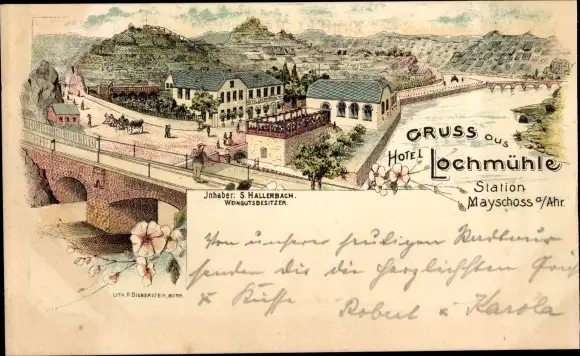 GRUSS aus
HOTEL Lochmühle
Station
Mayschoss a/Ahr.
Jnhaber: S. HALLERBACH.
WEINGUTSBESITZER.
Von unserer heutigen Radtour
senden dir die herzlichsten
& Küsse Robert & Karola
LITH. P. BIEBERSTEIN, BONN.